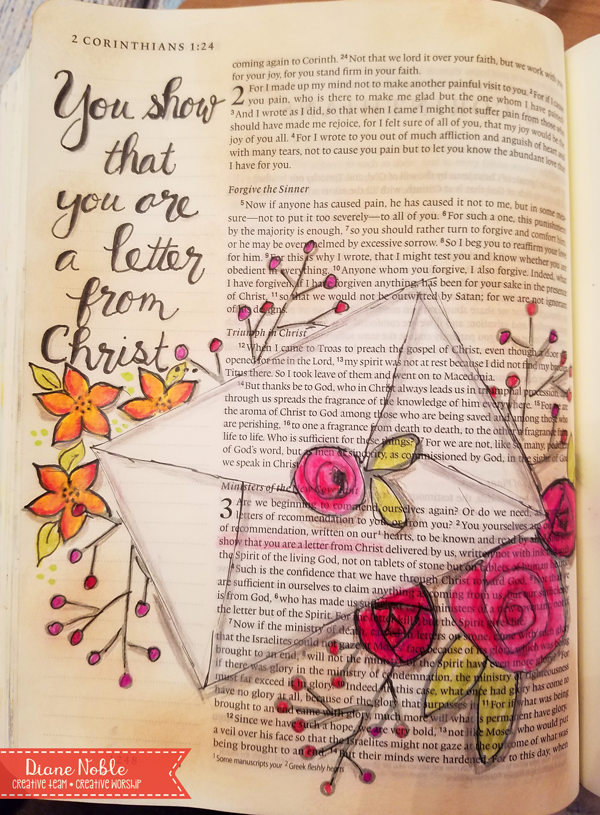 2 CORINTHIANS 1:24
You show
that
you are
a letter
from
Christ.
coming again to Corinth. 24Not that we lord it over your faith, but we work with
for your joy, for you stand firm in your faith.
2 For I made up my mind not to make another painful visit to you. 2For if I cause
you pain, who is there to make me glad but the one whom I have pained?
3And I wrote as I did, so that when I came I might not suffer pain from those who
should have made me rejoice, for I felt sure of all of you, that my joy would be the
joy of you all. 4For I wrote to you out of much affliction and anguish of heart and
with many tears, not to cause you pain but to let you know the abundant love that
I have for you.
Forgive the Sinner
5Now if anyone has caused pain, he has caused it not to me, but in some mea-
sure—not to put it too severely—to all of you. 6For such a one, this punishment
by the majority is enough, 7so you should rather turn to forgive and comfort him,
or he may be overwhelmed by excessive sorrow. 8So I beg you to reaffirm your love
for him. 9For this is why I wrote, that I might test you and know whether you are
obedient in everything. 10Anyone whom you forgive, I also forgive. Indeed, what
I have forgiven, if I have forgiven anything, has been for your sake in the presence
of Christ, 11so that we would not be outwitted by Satan; for we are not ignorant
of his designs.
Triumph in Christ
12When I came to Troas to preach the gospel of Christ, even though a door was
opened for me in the Lord, 13my spirit was not at rest because I did not find my brother
Titus there. So I took leave of them and went on to Macedonia.
14But thanks be to God, who in Christ always leads us in triumphal procession, and
through us spreads the fragrance of the knowledge of him everywhere. 15For we are
the aroma of Christ to God among those who are being saved and among those who
are perishing, 16to one a fragrance from death to death, to the other a fragrance from
life to life. Who is sufficient for these things? 17For we are not, like so many, peddlers
of God's word, but as men of sincerity, as commissioned by God, in the sight of God
we speak in Christ.
Ministers of the New Covenant
3 Are we beginning to commend ourselves again? Or do we need, as
letters of recommendation to you, or from you? 2You yourselves are
of recommendation, written on our1 hearts, to be known and read by
show that you are a letter from Christ delivered by us, written not with ink
the Spirit of the living God, not on tablets of stone but on tablets of human
Such is the confidence that we have through Christ toward God.
are sufficient in ourselves to claim anything as coming from us, but
is from God, 6who has made us ministers of a new covenant, not
the letter but of the Spirit. For the letter kills, but the Spirit
7Now if the ministry of death, carved in letters on stone, came with
that the Israelites could not gaze at Moses' face because of its glory, which was being
brought to an end, 8will not the ministry of the Spirit have even more
if there was glory in the ministry of condemnation, the ministry of righteousness
must far exceed it in glory. Indeed, in this case, what once had glory has come to
have no glory at all, because of the glory that For if what was being
brought to an end came with glory, much more will what is permanent have glory.
12Since we have such a hope, we are very bold, 13not like Moses, who would put
a veil over his face so that the Israelites might not gaze at the outcome of what was
being brought to an end. But their minds were hardened. For to this day, when
1 Some manuscripts your 2 Greek fleshly hearts
Diane Noble
CREATIVE TEAM • CREATIVE WORSHIP